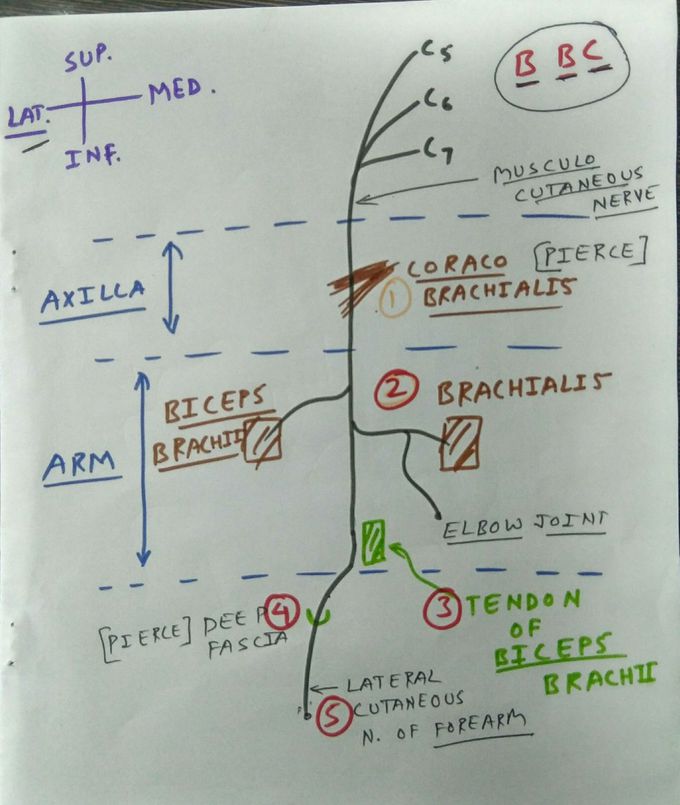 SUP.
LAT. MED.
INF.
C5
C6
C7
B B C
MUSCULO
CUTANEOUS
NERVE
AXILLA
CORACO [PIERCE]
① BRACHIALIS
ARM
BICEPS
BRACHII
② BRACHIALIS
ELBOW JOINT
③ TENDON
OF
BICEPS
BRACHII
[PIERCE] DEEP ④
FASCIA
LATERAL
⑤ CUTANEOUS
N. OF FOREARM